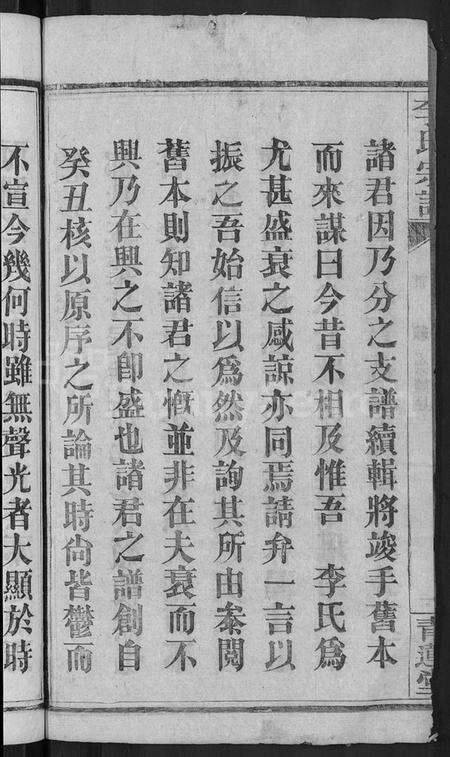 李氏宗譜
青蓮堂
諸君因乃分之支譜續輯將竣手舊本
而來謀曰今昔不相及惟吾　李氏爲
尤甚盛衰之感諒亦同焉請弁一言以
振之吾始信以爲然及詢其所由案閱
舊本則知諸君之慨並非在夫衰而不
興乃在興之不卽盛也諸君之譜創自
癸丑核以原序之所論其時尙皆鬱而
不宣今幾何時雖無聲光者大顯於時